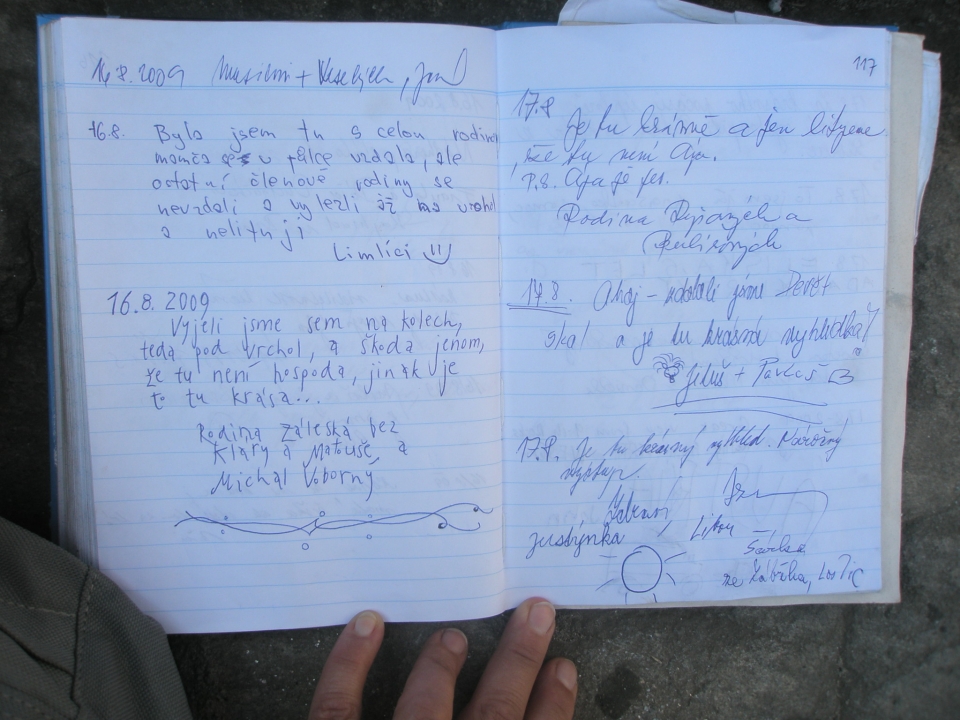 16.8.2009
16.8. Byla jsem tu s celou rodinou
mamča v půlce vzdala, ale
ostatní členové rodiny se
nevzdali a vylezli až na vrchol
a nelitují
Limlíci
16.8.2009
Vyjeli jsme sem na kolech,
teda pod vrchol, a škoda jenom,
že tu není hospoda, jinak je
to tu krása...
Rodina Záleská bez
Kláry a Matouše, a
Michal Voborný
117
17.8
Je tu krásně a jen litujeme
, že tu není Aja.
P.S. Aja je pes.
Rodina a
17.8. Ahoj - jsme Devět
skal a je tu krásná vyhlídka!
+
17.8. Je tu krásný výhled. Náročný
výstup.
Justýnka
Libor
ze Zábřeha,